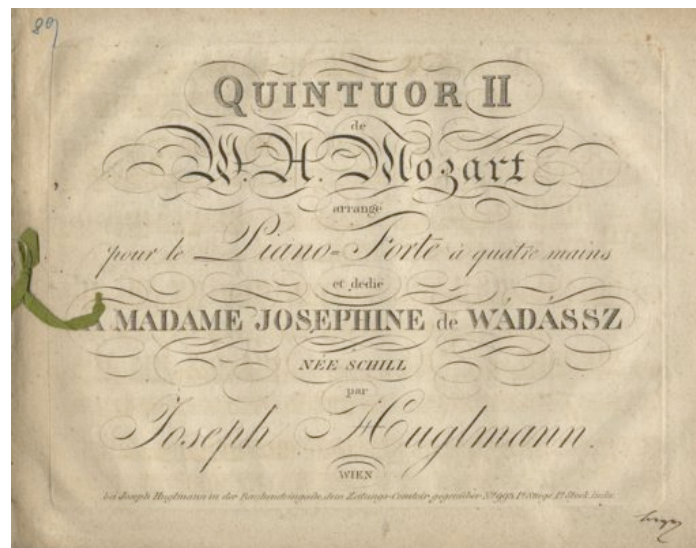 89
QUINTUOR II
de
W. A. Mozart
arrangé
pour le Piano=Forte à quatre mains
et dedié
A MADAME JOSEPHINE de WÁDÁSSZ
NÉE SCHILL
par
Joseph Huglmann.
WIEN
bei Joseph Huglmann in der Rauhensteingasse, dem Zeitungs-Comtoir gegenüber No. 993, 1te Stiege, 1ter Stock links.